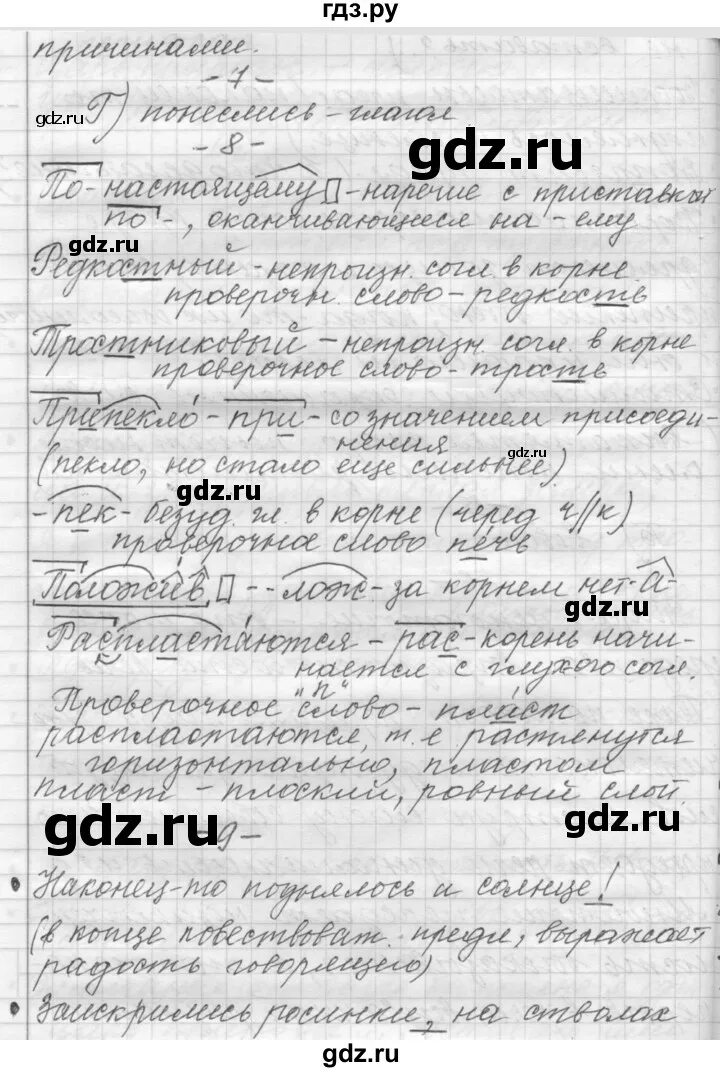 гдз.ру
причинами.
- 7 -
gdz.ru
Г) понеслись - глагол
- 8 -
gdz.ru
По-настоящему - наречие с приставкой
по-, оканчивающееся на -ему
gdz.ru
Редкостный - непроизн. согл. в корне
проверочн. слово - редкость
gdz.ru
Тростниковый - непроизн. согл. в корне
проверочное слово - трость
Припекло - при - со значением присоеди-
нения
gdz.ru
(пекло, но стало еще сильнее)
gdz.ru
- пек - безуд. гл. в корне (черед ч//к)
проверочное слово печь
Положив - - лож - за корнем нет -а-
gdz.ru
Распластаются - рас - корень начи-
нается с глухого согл.
"п"
Проверочное слово - пласт
распластаются, т.е растянутся
горизонтально, пластом
пласт - плоский, ровный слой.
gdz.ru
gdz.ru
- 9 -
• Наконец-то поднялось и солнце!
(в конце повествоват. предл, выражает
gdz.ru
радость говорящего)
gdz.ru
• Заискрились росинки, на стволах
gdz.ru